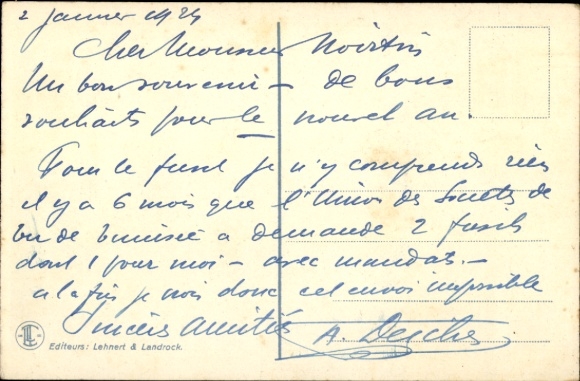 2 janvier 1924
Cher Monsieur
Un bon souvenir – de bons
souhaits pour le nouvel an.
Pour le fusil je n'y comprends rien
il y a 6 mois que l'Union des Sociétés de
tir de Tunisie a demandé 2 fusils
dont 1 pour moi – avec mandat. –
a la fin je vois donc cet envoi impossible
Sincères Amitiés A.
Editeurs: Lehnert & Landrock.